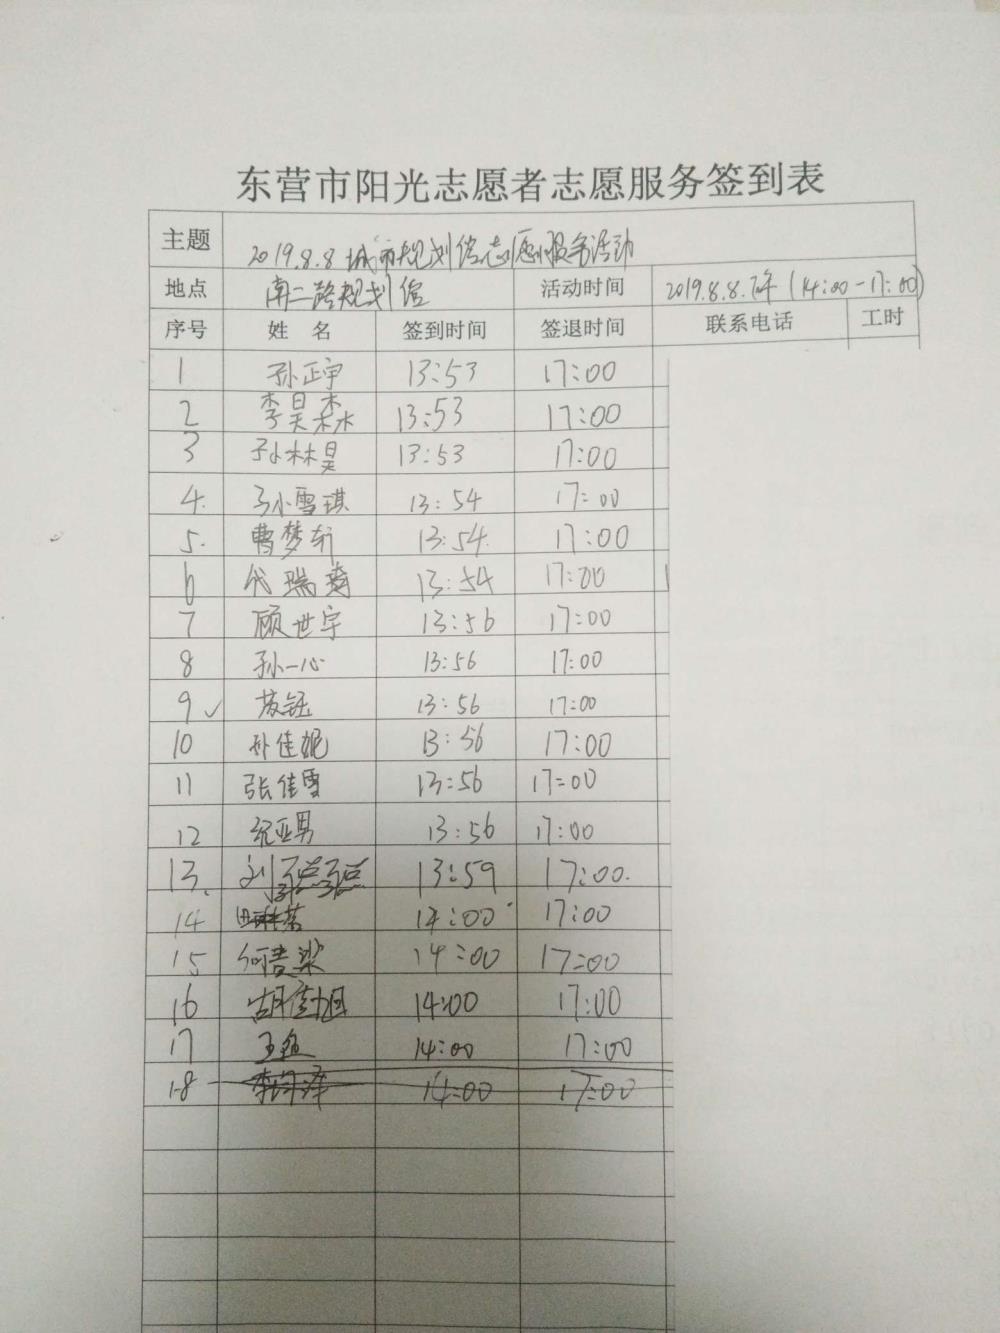 东营市阳光志愿者志愿服务签到表
主题 2019.8.8城市规划馆志愿服务活动
地点 南二路规划馆 活动时间 2019.8.8.下午(14:00-17:00)
序号 姓 名 签到时间 签退时间 联系电话 工时
1 孙正宇 13:53 17:00
2 李昊淼 13:53 17:00
3 孙林昊 13:53 17:00
4. 孙雪琪 13:54 17:00
5. 曹梦轩 13:54. 17:00
6 代瑞琦 13:54 17:00
7 顾世宇 13:56 17:00
8 孙一心 13:56 17:00
9 ✓ 13:56 17:00
10 孙佳妮 13:56 17:00
11 张佳雪 13:56 17:00
12 纪亚男 13:56 17:00
13. 刘 13:59 17:00.
14 14:00 17:00
15 14:00 17:00
16 胡 14:00 17:00
17 王 14:00 17:00
18 李 泽 14:00 17:00